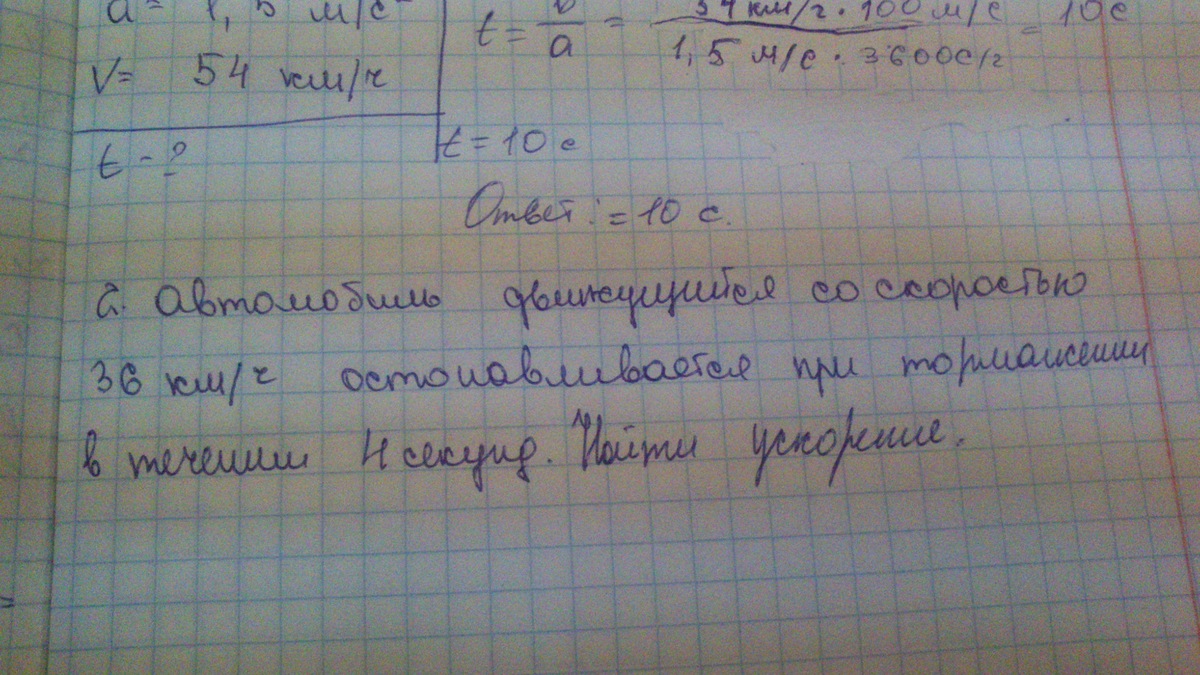 a = 1,5 м/с
t = v/a = 54 км/ч · 100 м/с / 1,5 м/с · 3600 с/ч = 10 с
V = 54 км/ч
t - ?
t = 10 с
Ответ: = 10 с.
2. Автомобиль движущийтся со скоростью
36 км/ч остонавливается при тормажении
в течении 4 секунд. Найти ускорение.